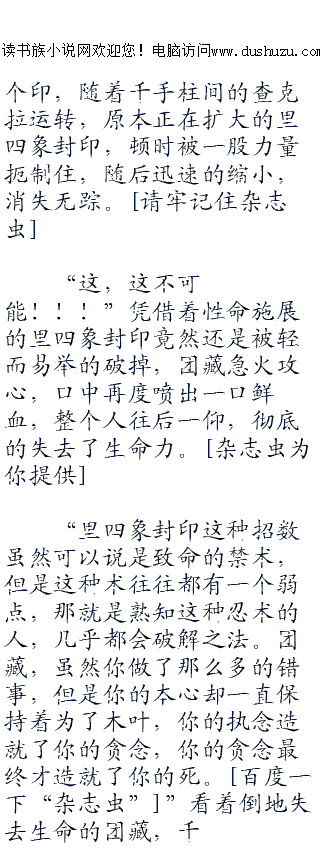 读书族小说网欢迎您！电脑访问www.dushuzu.com
个印，随着千手柱间的查克
拉运转，原本正在扩大的里
四象封印，顿时被一股力量
扼制住，随后迅速的缩小，
消失无踪。[请牢记住杂志
虫]
“这，这不可
能！！！”凭借着性命施展
的里四象封印竟然还是被轻
而易举的破掉，团藏急火攻
心，口中再度喷出一口鲜
血，整个人往后一仰，彻底
的失去了生命力。[杂志虫为
你提供]
“里四象封印这种招数
虽然可以说是致命的禁术，
但是这种术往往都有一个弱
点，那就是熟知这种忍术的
人，几乎都会破解之法。团
藏，虽然你做了那么多的错
事，但是你的本心却一直保
持着为了木叶，你的执念造
就了你的贪念，你的贪念最
终才造就了你的死。[百度一
下“杂志虫”]”看着倒地失
去生命的团藏，千